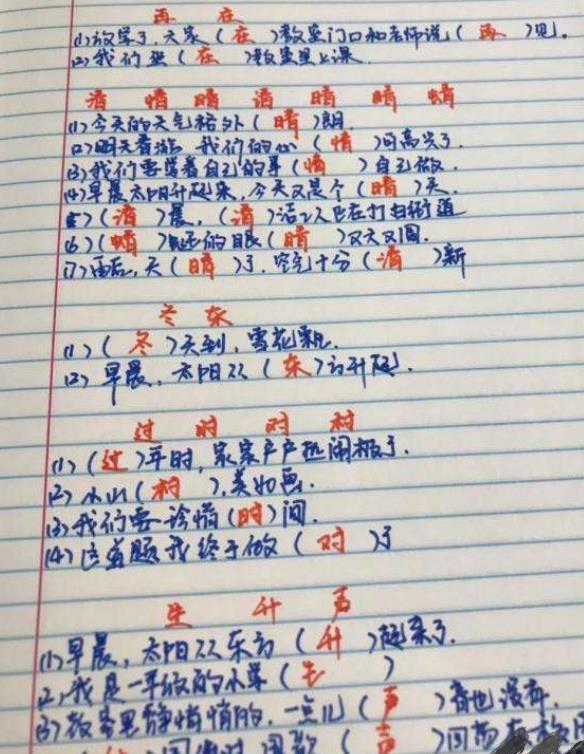 再 在
(1)放学了,大家(在)教室门口和老师说(再)见。
(2)我们坐(在)教室里上课.
清 情 晴 请 睛 晴 蜻
(1)今天的天气格外(晴)朗.
(2)明天春游 我们的心(情)可高兴了.
(3)我们要学着自己的事(情)自己做.
(4)早晨太阳升起来,今天又是个(晴)天.
(5)(清)晨,(清)洁工人已在打扫街道
(6)(蜻)蜓的眼(睛)又大又圆.
(7)雨后,天(晴)了.空气十分(清)新
冬 东
(1)(冬)天到,雪花飘.
(2)早晨,太阳从(东)方升起.
过 时 对 村
(1)(过)年时,家家户户热闹极了.
(2)小山(村),美如画.
(3)我们要珍惜(时)间.
(4)这道题我终于做(对)了
生 升 声
(1)早晨,太阳从东方(升)起来了.
(2)我是一年级的小学(生)
(3)教室里静悄悄的,一点儿(声)音也没有.